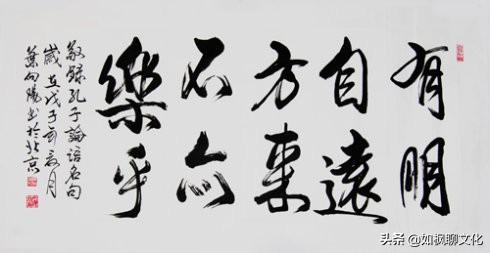 有朋
自遠
方来
不亦
樂乎
敬錄孔子論語名句
歲在戊子年夏月
葉向陽书於北京
头条 @如枫聊文化